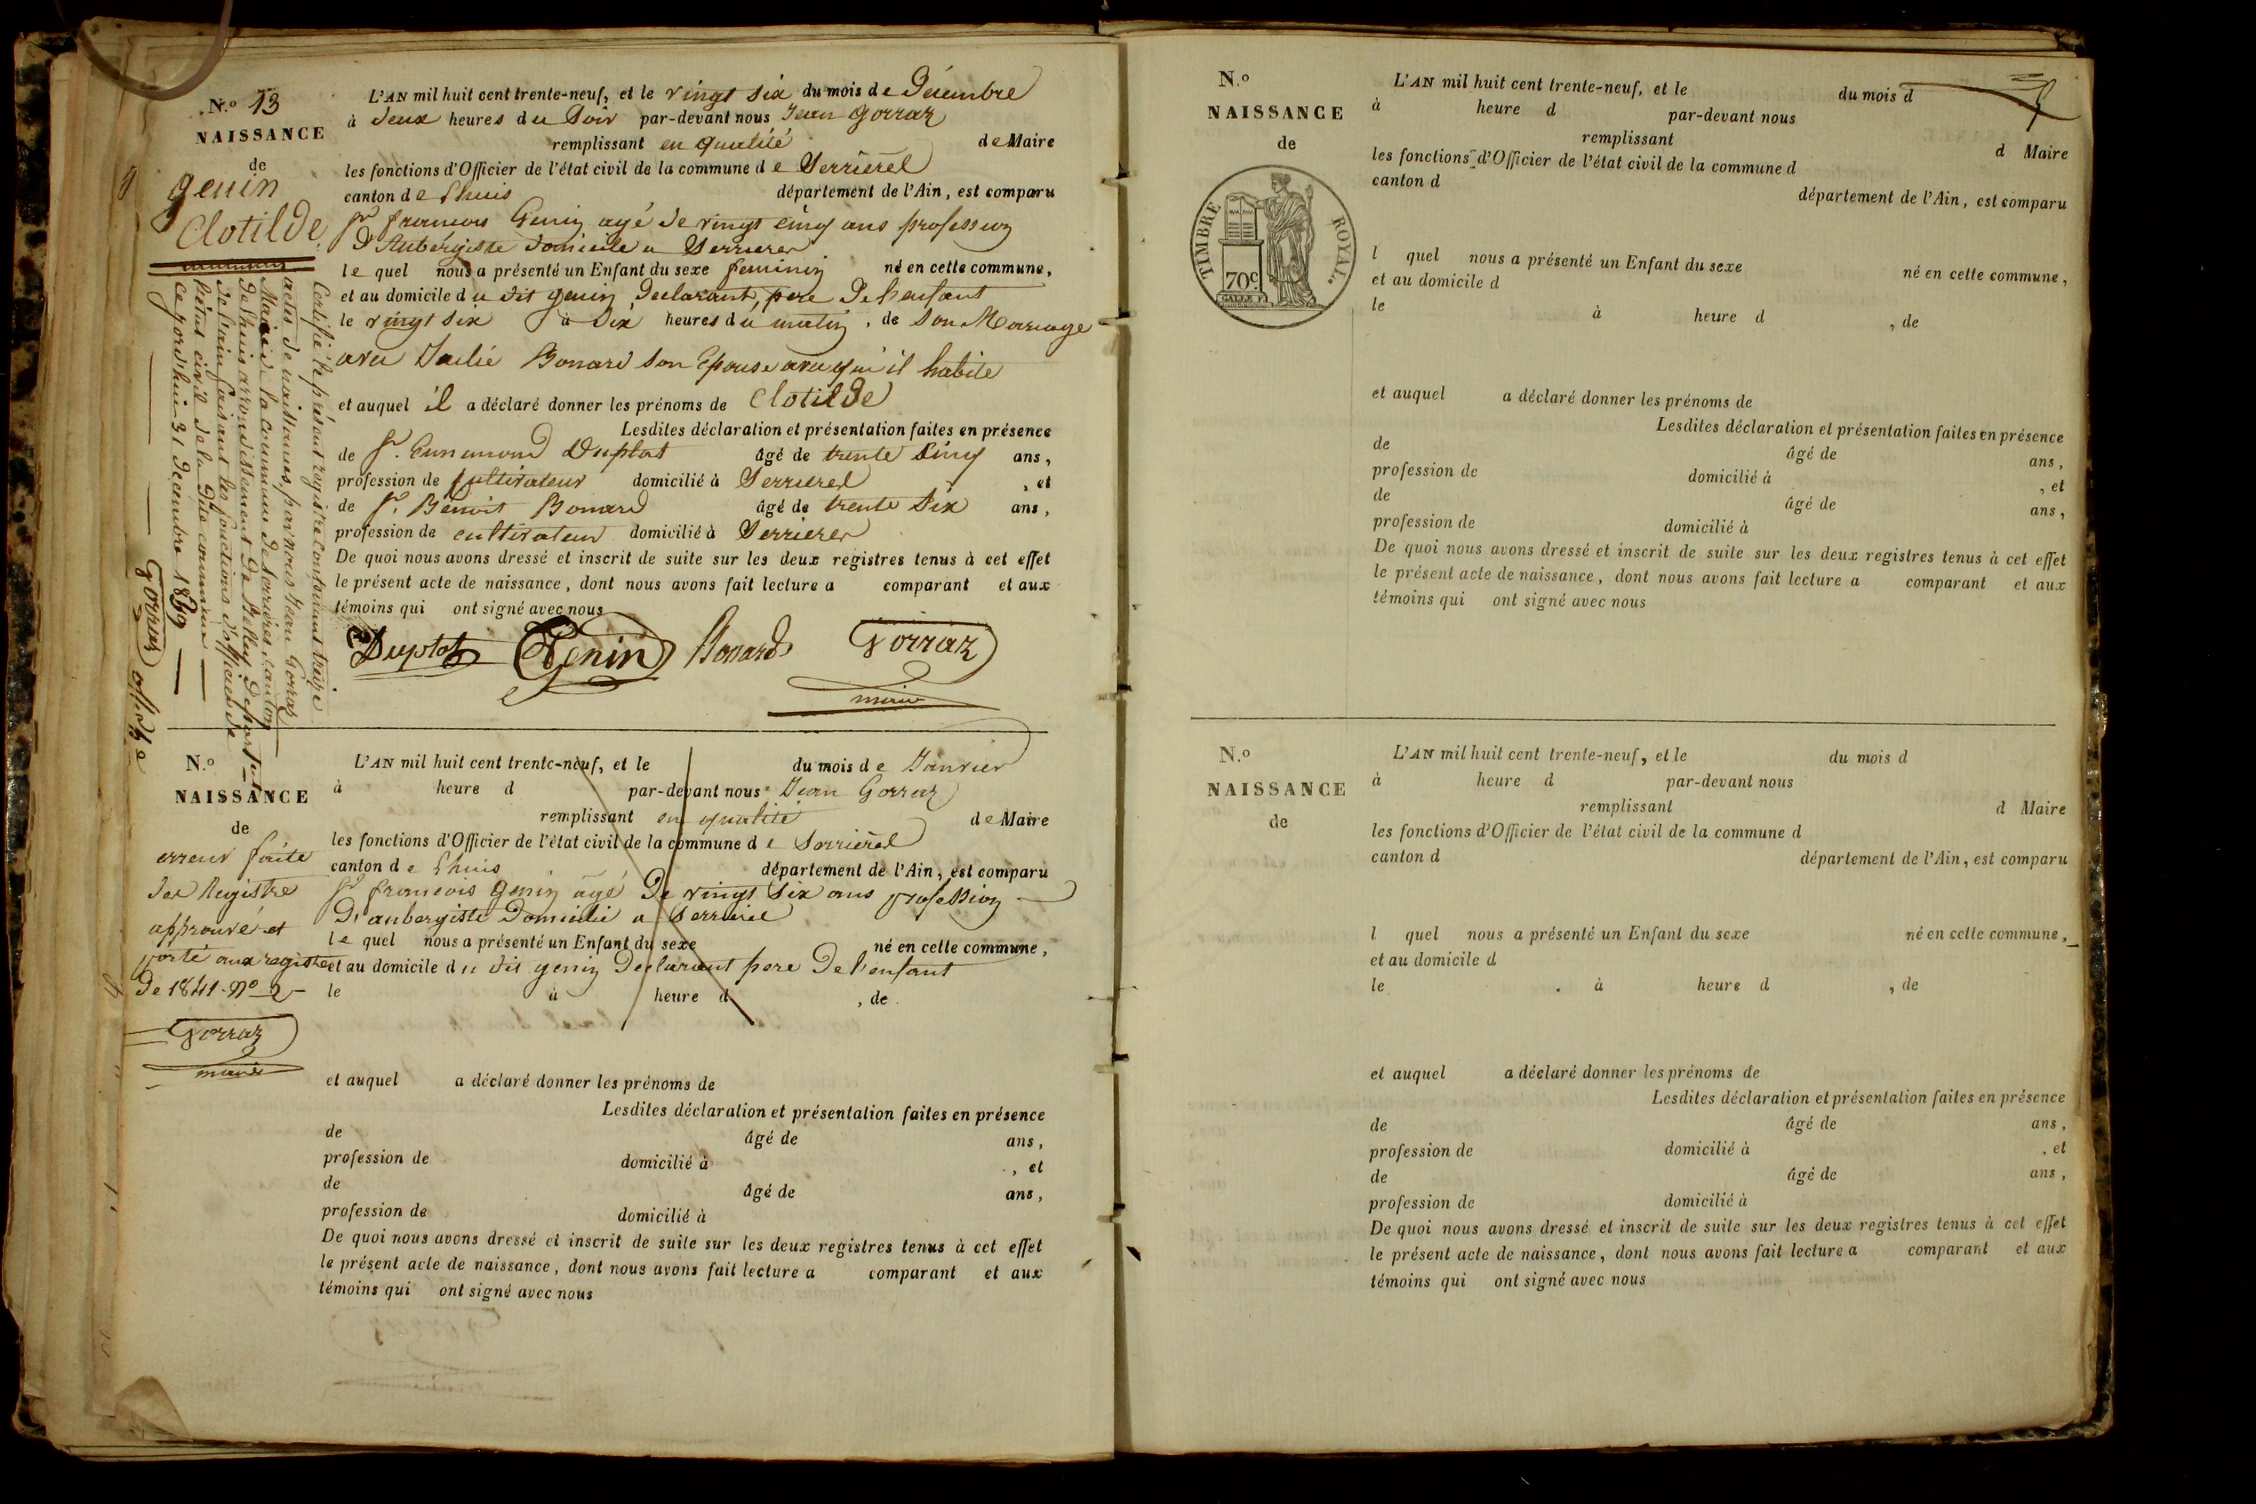 N.º 13
NAISSANCE
de
genin
Clotilde
L'AN mil huit cent trente-neuf, et le vingt six du mois de Décembre
à deux heures du Soir par-devant nous Jean Gorraz
remplissant en qualité de Maire
les fonctions d'Officier de l'état civil de la commune de Serrieres
canton de Lhuis département de l'Ain, est comparu
Sr francois Genin agé de vingt cinq ans profession
D'Aubergiste domicilie a Serrieres
le quel nous a présenté un Enfant du sexe feminin né en cette commune,
et au domicile du dit genin Declarant, pere De l'enfant
le vingt six à Dix heures du matin, de Son Mariage
avec Julie Bonard Son Epouse avec qui il habite
et auquel il a déclaré donner les prénoms de Clotilde
Lesdites déclaration et présentation faites en présence
de Sr. Ennemond Duplat âgé de trente Cinq ans,
profession de Cultivateur domicilié à Serrieres, et
de Sr. Benoit Bonard âgé de trente Six ans,
profession de cultivateur domicilié à Serrieres
De quoi nous avons dressé et inscrit de suite sur les deux registres tenus à cet effet
le présent acte de naissance, dont nous avons fait lecture a comparant et aux
témoins qui ont signé avec nous
Duplat Genin Bonard Gorraz
maire
Certifié le présent registre contenant treize
actes de naissances, par nous Jean Gorraz
Maire de la commune de Serrières, canton
de Lhuis arrondissement de Belley, Départ.
de l'ain faisant les fonctions d'officier de
l'état civil de la dite commune
Ce jourd'hui 31 decembre 1839
Gorraz
N.º
NAISSANCE
de
erreur faite
des Registre
approuvé et
porté aux registre
de 1841. Nº 2
Gorraz
maire
L'AN mil huit cent trente-neuf, et le du mois de Janvier
à heure d par-devant nous Jean Gorraz
remplissant en qualité de Maire
les fonctions d'Officier de l'état civil de la commune de Serrieres
canton de Lhuis département de l'Ain, est comparu
Sr francois genin agé De vingt Six ans profession
D'aubergiste Domicilié a Serrieres
le quel nous a présenté un Enfant du sexe né en cette commune,
et au domicile du dit genin Declarant pere De l'enfant
le à heure d, de
et auquel a déclaré donner les prénoms de
Lesdites déclaration et présentation faites en présence
de âgé de ans,
profession de domicilié à, et
de âgé de ans,
profession de domicilié à
De quoi nous avons dressé et inscrit de suite sur les deux registres tenus à cet effet
le présent acte de naissance, dont nous avons fait lecture a comparant et aux
témoins qui ont signé avec nous
N.º
NAISSANCE
de
TIMBRE ROYAL.
70c
L'AN mil huit cent trente-neuf, et le du mois d
à heure d par-devant nous
remplissant d Maire
les fonctions d'Officier de l'état civil de la commune d
canton d département de l'Ain, est comparu
l quel nous a présenté un Enfant du sexe né en cette commune,
et au domicile d
le à heure d, de
et auquel a déclaré donner les prénoms de
Lesdites déclaration et présentation faites en présence
de âgé de ans,
profession de domicilié à, et
de âgé de ans,
profession de domicilié à
De quoi nous avons dressé et inscrit de suite sur les deux registres tenus à cet effet
le présent acte de naissance, dont nous avons fait lecture a comparant et aux
témoins qui ont signé avec nous
N.º
NAISSANCE
de
L'AN mil huit cent trente-neuf, et le du mois d
à heure d par-devant nous
remplissant d Maire
les fonctions d'Officier de l'état civil de la commune d
canton d département de l'Ain, est comparu
l quel nous a présenté un Enfant du sexe né en cette commune,
et au domicile d
le à heure d, de
et auquel a déclaré donner les prénoms de
Lesdites déclaration et présentation faites en présence
de âgé de ans,
profession de domicilié à, et
de âgé de ans,
profession de domicilié à
De quoi nous avons dressé et inscrit de suite sur les deux registres tenus à cet effet
le présent acte de naissance, dont nous avons fait lecture a comparant et aux
témoins qui ont signé avec nous